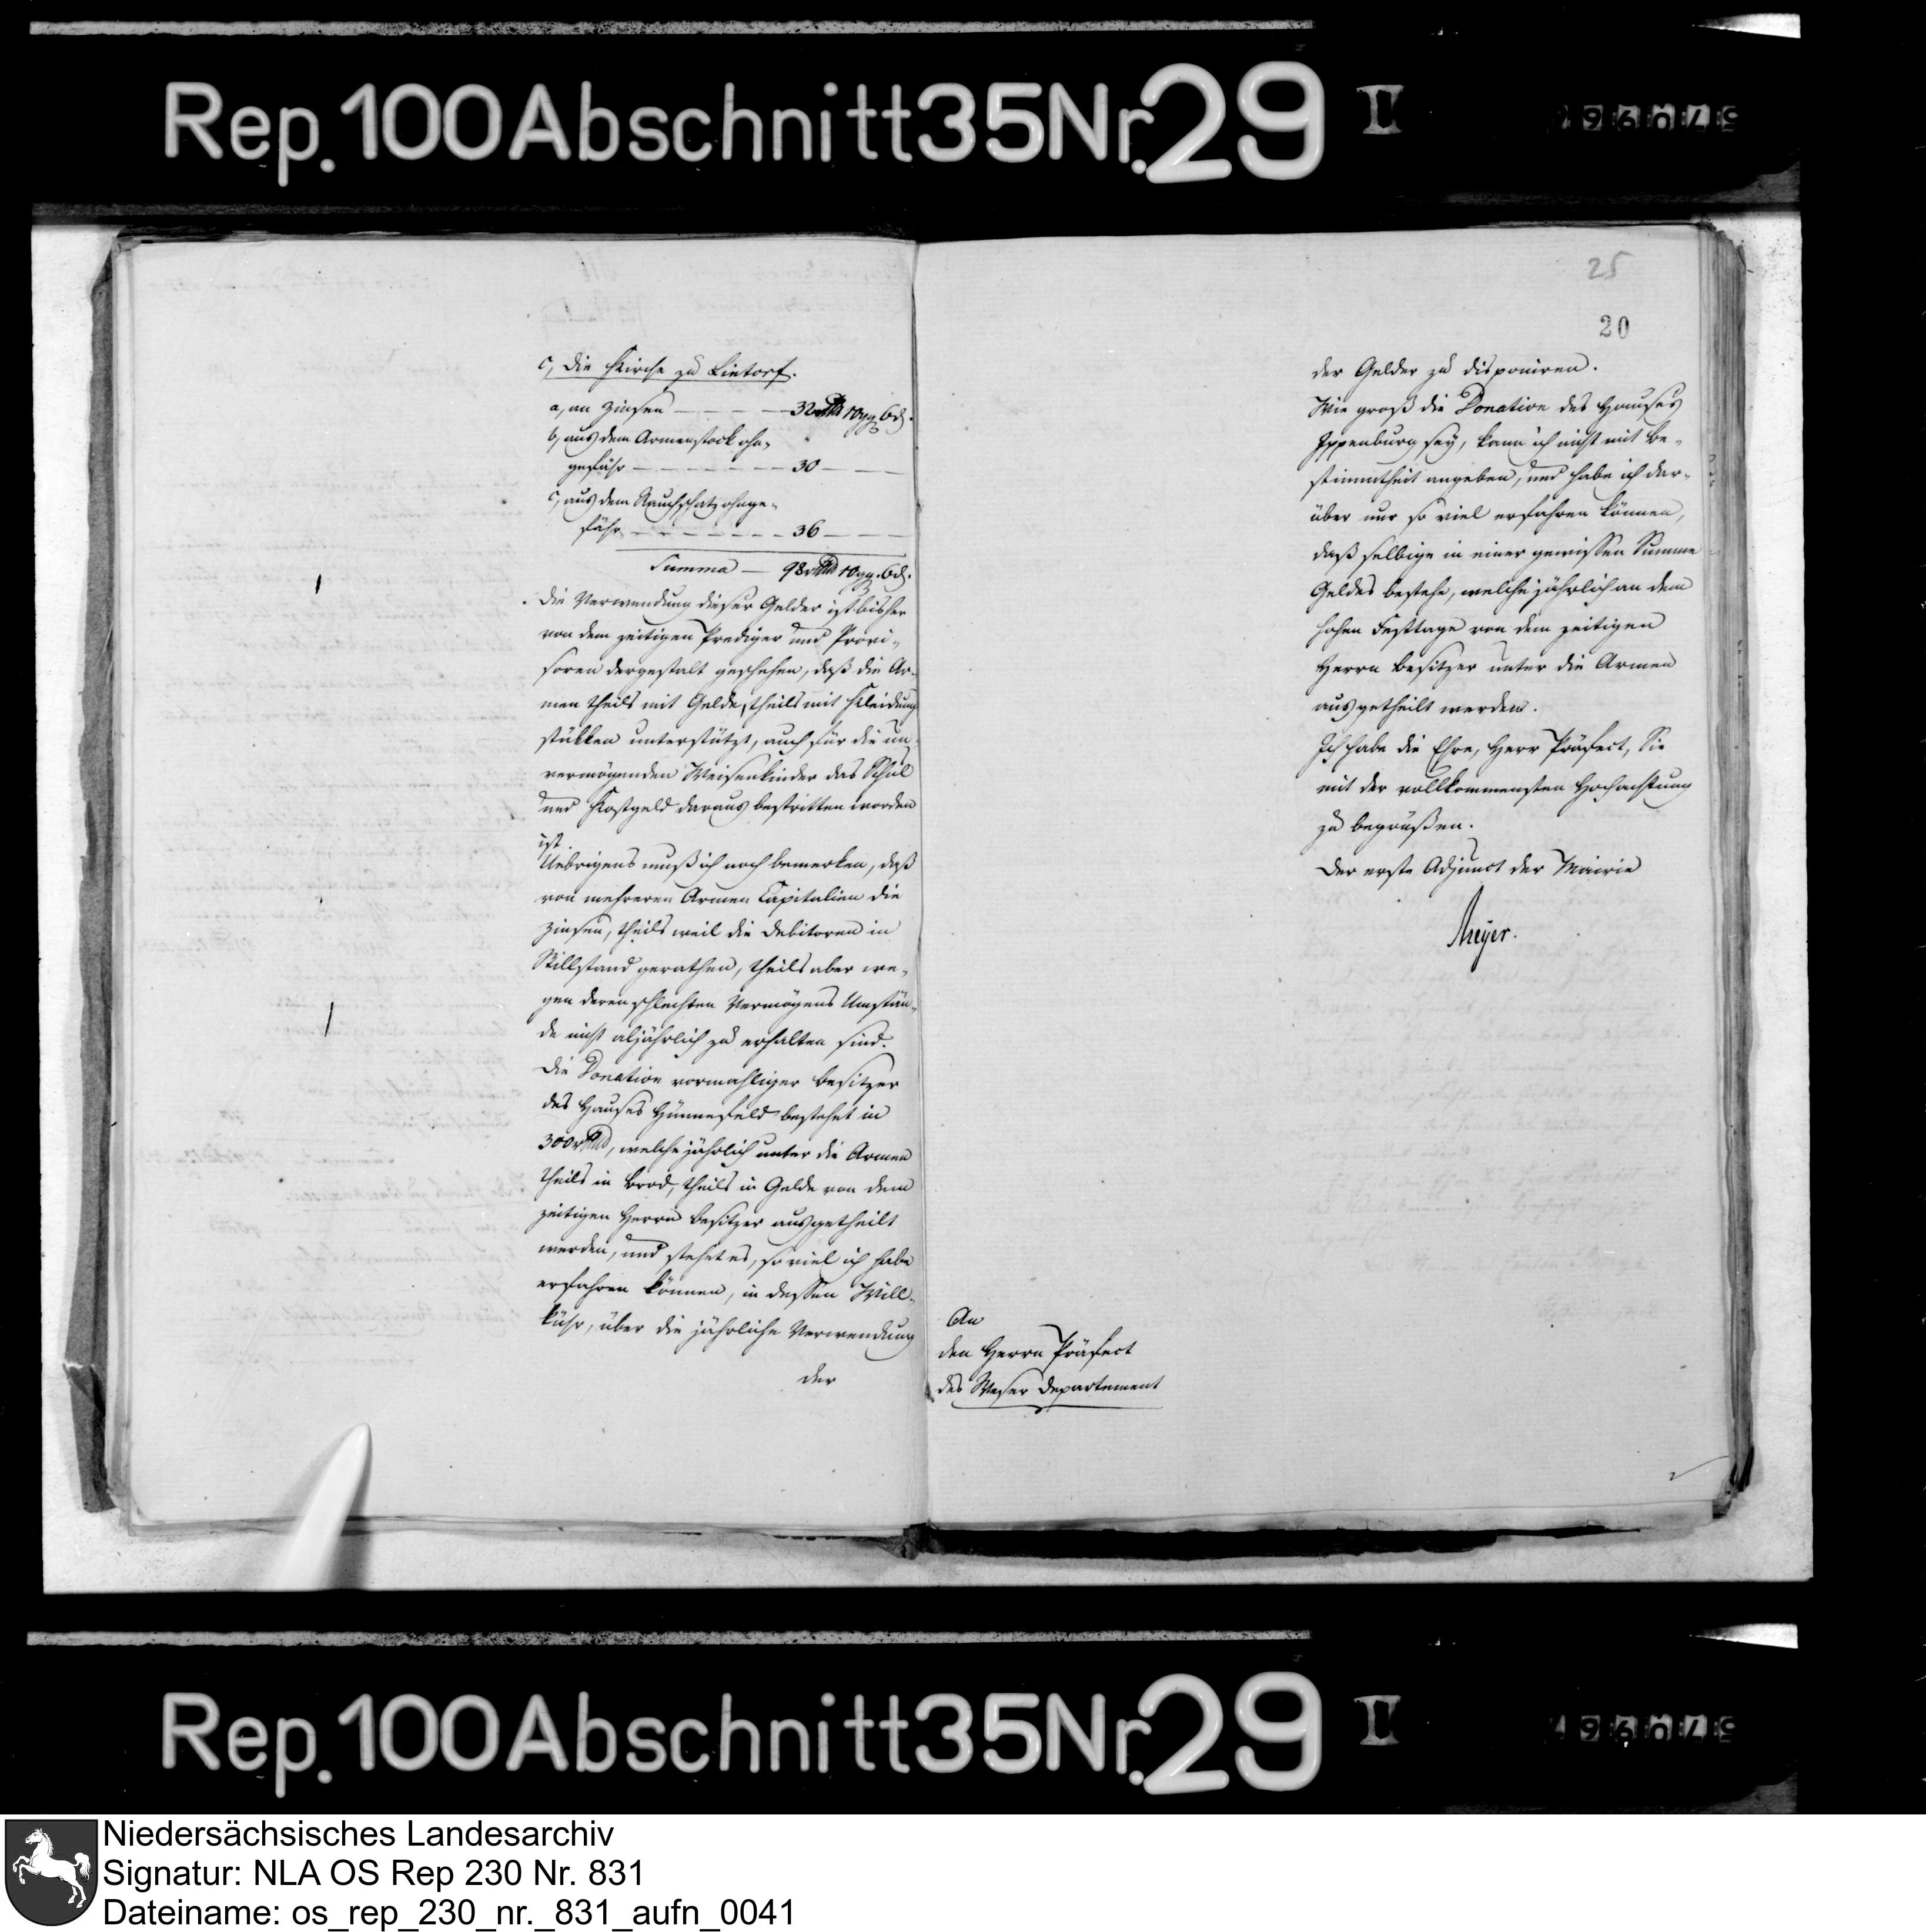 Rep. 100 Abschnitt 35 Nr. 29 I
c, die Kirche zu Lintorf.
a, an Zinsen — — — — 32 rthlr 10 gg. 6 d.
b, aus dem Armenstock ohn-
gefähr — — — — — — 30 — —
c, aus dem Rauchschatz ohnge-
fähr — — — — — — 36 — —
Summa — 98 rthlr 10 gg. 6 d.
Die Verwendung dieser Gelder ist bisher
von dem zeitigen Prediger und Provi-
soren dergestalt geschehen, daß die Ar-
men theils mit Gelde, theils mit Kleidung
stükken unterstützt, auch für die un-
vermögenden Weisenkinder das Schul
und Kostgeld daraus bestritten worden
ist.
Uebrigens muß ich noch bemerken, daß
von mehreren Armen Capitalien die
Zinsen, theils weil die Debitoren in
Stillstand gerathen, theils aber we-
gen deren schlechten Vermögens Umstän-
de nicht aljährlich zu erhalten sind.
Die Donation vormahliger Besitzer
des Hauses Hünnefeld bestehet in
300 rthlr, welche jährlich unter die Armen
theils in Brod, theils in Gelde von dem
zeitigen Herrn Besitzer ausgetheilt
werden, und stehet es, so viel ich habe
erfahren können, in dessen Will-
kühr, über die jährliche Verwendung
der
25
20
der Gelder zu disponiren.
Wie groß die Donation des Hauses
Ippenburg sey, kann ich nicht mit Be-
stimmtheit angeben, und habe ich dar-
über nur so viel erfahren können,
daß selbige in einer gewissen Summe
Geldes bestehe, welche jährlich an dem
hohen Festtage von dem zeitigen
Herrn Besitzer unter die Armen
ausgetheilt werden.
Ich habe die Ehre, Herr Präfect, Sie
mit der vollkommensten Hochachtung
zu begrüßen.
Der erste Adjunct der Mairie
Meyer.
An
den Herrn Präfect
des Weser Departement
Rep. 100 Abschnitt 35 Nr. 29 I
Niedersächsisches Landesarchiv
Signatur: NLA OS Rep 230 Nr. 831
Dateiname: os_rep_230_nr._831_aufn_0041